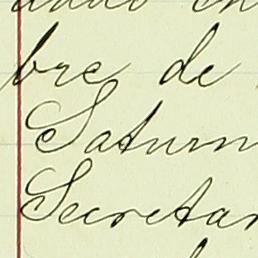 bre de
Saturn
Secretar